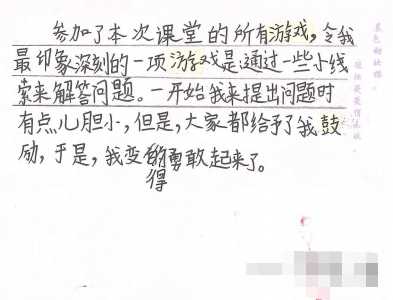 参加了本次课堂的所有游戏,令我
最印象深刻的一项游戏是通过一些小线
索来解答问题。一开始我来提出问题时
有点儿胆小,但是,大家都给予了我鼓
励,于是,我变得勇敢起来了。